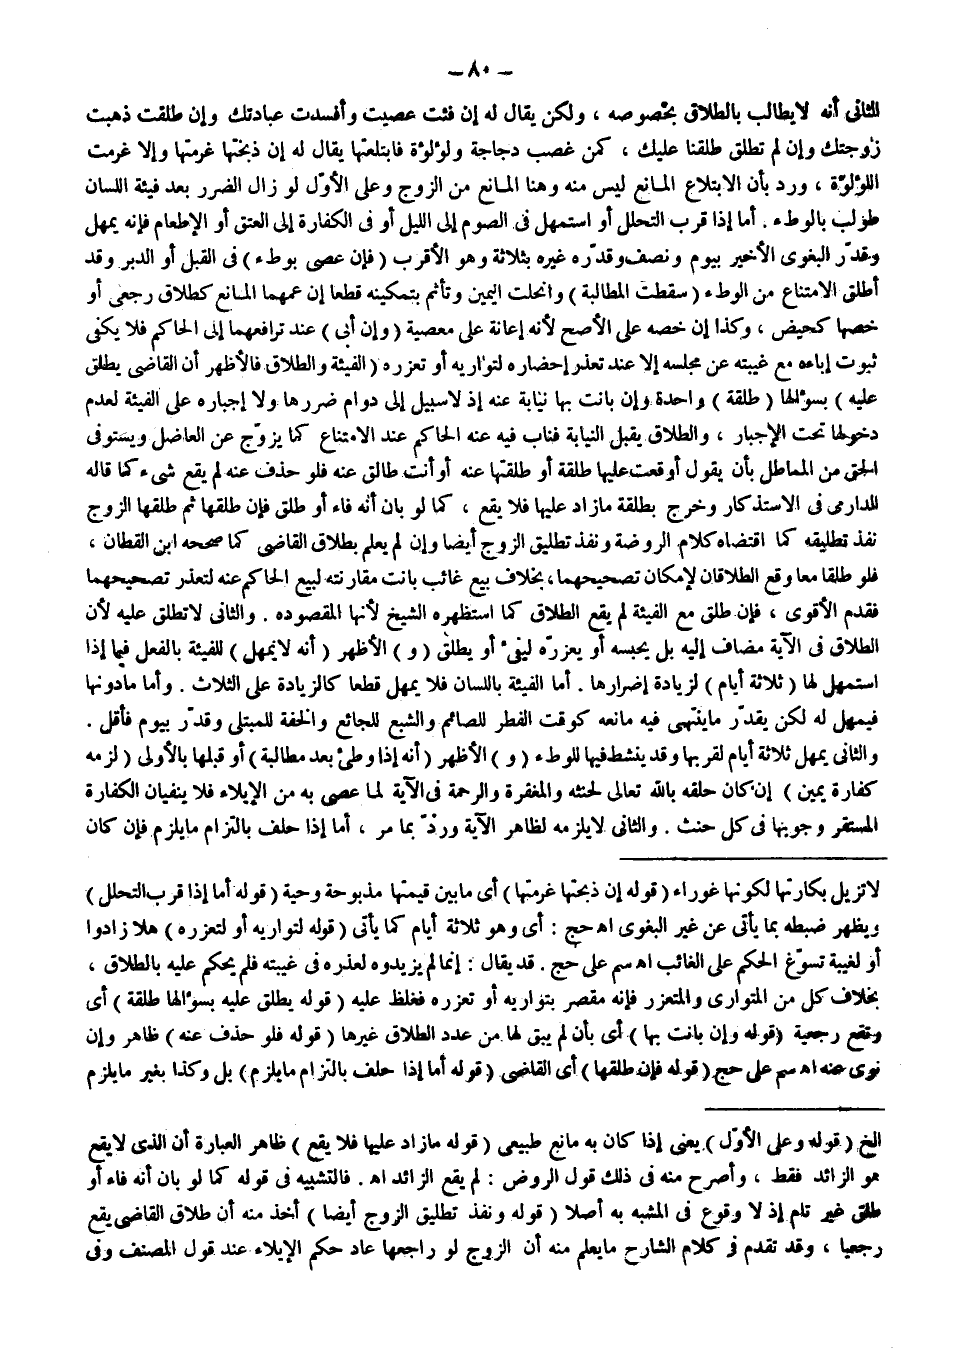 – ٨٠ –
الثانى أنه لايطالب بالطلاق بخصوصه ، ولكن يقال له إن فئت عصيت وأفسدت عبادتك وإن طلقت ذهبت
زوجتك وإن لم تطلق طلقنا عليك ، كمن غصب دجاجة ولؤلؤة فابتلعتها يقال له إن ذبحتها غرمتها وإلا غرمت
اللؤلؤة ، ورد بأن الابتلاع المانع ليس منه وهنا المانع من الزوج وعلى الأوّل لو زال الضرر بعد فيئة اللسان
طولب بالوطء . أما إذا قرب التحلل أو استمهل فى الصوم إلى الليل أو فى الكفارة إلى العتق أو الإطعام فإنه يمهل
وقدّر البغوى الأخير بيوم ونصف وقدّره غيره بثلاثة وهو الأقرب ( فإن عصى بوطء ) فى القبل أو الدبر وقد
أطلق الامتناع من الوطء ( سقطت المطالبة ) وانحلت اليمين وتأثم بتمكينه قطعا إن عمهما المانع كطلاق رجعى أو
خصها كحيض ، وكذا إن خصه على الأصح لأنه إعانة على معصية ( وإن أبى ) عند ترافعهما إلى الحاكم فلا يكفى
ثبوت إباءه مع غيبته عن مجلسه إلا عند تعذر إحضاره لتواريه أو تعزره ( الفيئة والطلاق فالأظهر أن القاضى يطلق
عليه ) بسؤالها ( طلقة ) واحدة وإن بانت بها نيابة عنه إذ لاسبيل إلى دوام ضررها ولا إجباره على الفيئة لعدم
دخولها تحت الإجبار ، والطلاق يقبل النيابة فناب فيه عنه الحاكم عند الامتناع كما يزوّج عن العاضل ويستوفى
الحق من المماطل بأن يقول أوقعت عليها طلقة أو طلقتها عنه أو أنت طالق عنه فلو حذف عنه لم يقع شىء كما قاله
الدارمى فى الاستذكار وخرج بطلقة مازاد عليها فلا يقع ، كما لو بان أنه فاء أو طلق فإن طلقها ثم طلقها الزوج
نفذ تطليقه كما اقتضاه كلام الروضة ونفذ تطليق الزوج أيضا وإن لم يعلم بطلاق القاضى كما صححه ابن القطان ،
فلو طلقا معا وقع الطلاقان لإمكان تصحيحهما ، بخلاف بيع غائب بانت مقارنته لبيع الحاكم عنه لتعذر تصحيحهما
فقدم الأقوى ، فإن طلق مع الفيئة لم يقع الطلاق كما استظهره الشيخ لأنها المقصوده . والثانى لاتطلق عليه لأن
الطلاق فى الآية مضاف إليه بل يحبسه أو يعزره ليفىء أو يطلق ( و ) الأظهر ( أنه لايمهل ) للفيئة بالفعل فيما إذا
استمهل لها ( ثلاثة أيام ) لزيادة إضرارها . أما الفيئة باللسان فلا يمهل قطعا كالزيادة على الثلاث . وأما مادونها
فيمهل له لكن يقدّر ماينتهى فيه مانعه كوقت الفطر للصائم والشبع للجائع والخفة للمبتلى وقدّر بيوم فأقل .
والثانى يمهل ثلاثة أيام لقربها وقد ينشط فيها للوطء ( و ) الأظهر ( أنه إذا وطئ بعد مطالبة ) أو قبلها بالأولى ( لزمه
كفارة يمين ) إن كان حلقه بالله تعالى لحنثه والمغفرة والرحمة فى الآية لما عصى به من الإيلاء فلا ينفيان الكفارة
المستقر وجوبها فى كل حنث . والثانى لايلزمه لظاهر الآية وردّ بما مر ، أما إذا حلف بالتزام مايلزم فإن كان
لاتزيل بكارتها لكونها غوراء ( قوله إن ذبحتها غرمتها ) أى مابين قيمتها مذبوحة وحية ( قوله أما إذا قرب التحلل )
ويظهر ضبطه بما يأتى عن غير البغوى اهـ حج : أى وهو ثلاثة أيام كما يأتى ( قوله لتواريه أو لتعزره ) هلا زادوا
أو لغيبة تسوّغ الحكم على الغائب اهـ سم على حج . قد يقال : إنما لم يزيدوه لعذره فى غيبته فلم يحكم عليه بالطلاق ،
بخلاف كل من المتوارى والمتعزر فإنه مقصر بتواريه أو تعزره فغلظ عليه ( قوله يطلق عليه بسؤالها طلقة ) أى
وتقع رجعية ( قوله وإن بانت بها ) أى بأن لم يبق لها من عدد الطلاق غيرها ( قوله فلو حذف عنه ) ظاهر وإن
نوى عنه اهـ سم على حج ( قوله فإن طلقها ) أى القاضى ( قوله أما إذا حلف بالتزام مايلزم ) بل وكذا بغير مايلزم
الخ ( قوله وعلى الأوّل ) يعنى إذا كان به مانع طبيعى ( قوله مازاد عليها فلا يقع ) ظاهر العبارة أن الذى لايقع
هو الزائد فقط ، وأصرح منه فى ذلك قول الروض : لم يقع الزائد اهـ . فالتشبيه فى قوله كما لو بان أنه فاء أو
طلق غير تام إذ لا وقوع فى المشبه به أصلا ( قوله ونفذ تطليق الزوج أيضا ) أخذ منه أن طلاق القاضى يقع
رجعيا ، وقد تقدم فى كلام الشارح مايعلم منه أن الزوج لو راجعها عاد حكم الإيلاء عند قول المصنف وفى